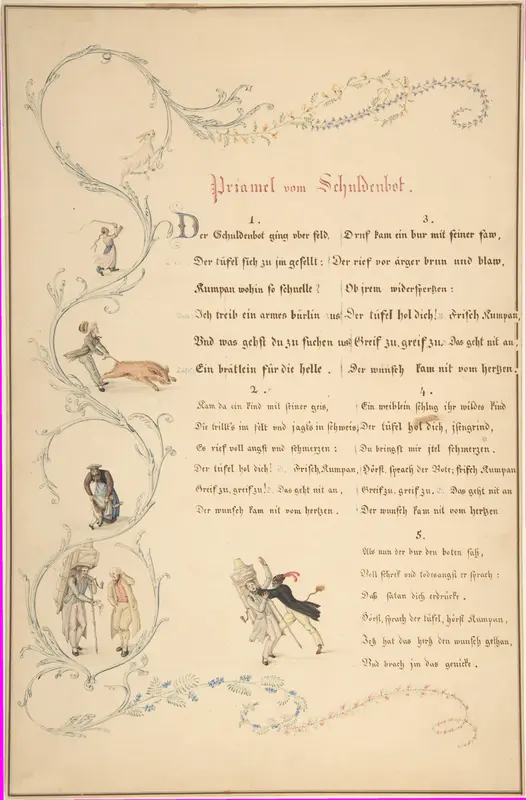 Priamel vom Schuldenbot.
1.
Der Schuldenbot ging vber feld,
Der tüfel sich zu jm gesellt:
Kumpan wohin so schnelle?
Ich treib ein armes bürlin us
Vnd was gehst du zu suchen us
Ein brätlein für die helle.
2.
Kam da ein kind mit seiner geis,
Die trillt's im felt vnd jagts in schweis,
Es rief voll angst vnd schmerzen:
Der tüfel hol dich! Frisch, Kumpan,
Greif zu, greif zu! Das geht nit an,
Der wunsch kam nit vom hertzen.
3.
Druf kam ein bur mit seiner saw,
Der rief vor ärger brun vnd blaw,
Ob jrem widersperzen:
Der tüfel hol dich! Frisch Kumpan,
Greif zu, greif zu. Das geht nit an,
Der wunsch kam nit vom hertzen.
4.
Ein weiblein schlug ihr wildes kind
Der tüfel hol dich, isengrind,
Du bringst mir itel schmerzen.
Hörst, sprach der Bote; frisch Kumpan
Greif zu, greif zu. Das geht nit an
Der wunsch kam nit vom hertzen
5.
Als nun der bur den boten sah,
Voll schrek vnd todesangst er sprach:
Daß satan dich erdrücke.
Hörst, sprach der tüfel, hörst Kumpan,
Jetz hat das hertz den wunsch gethan,
Vnd brach jm das genicke.